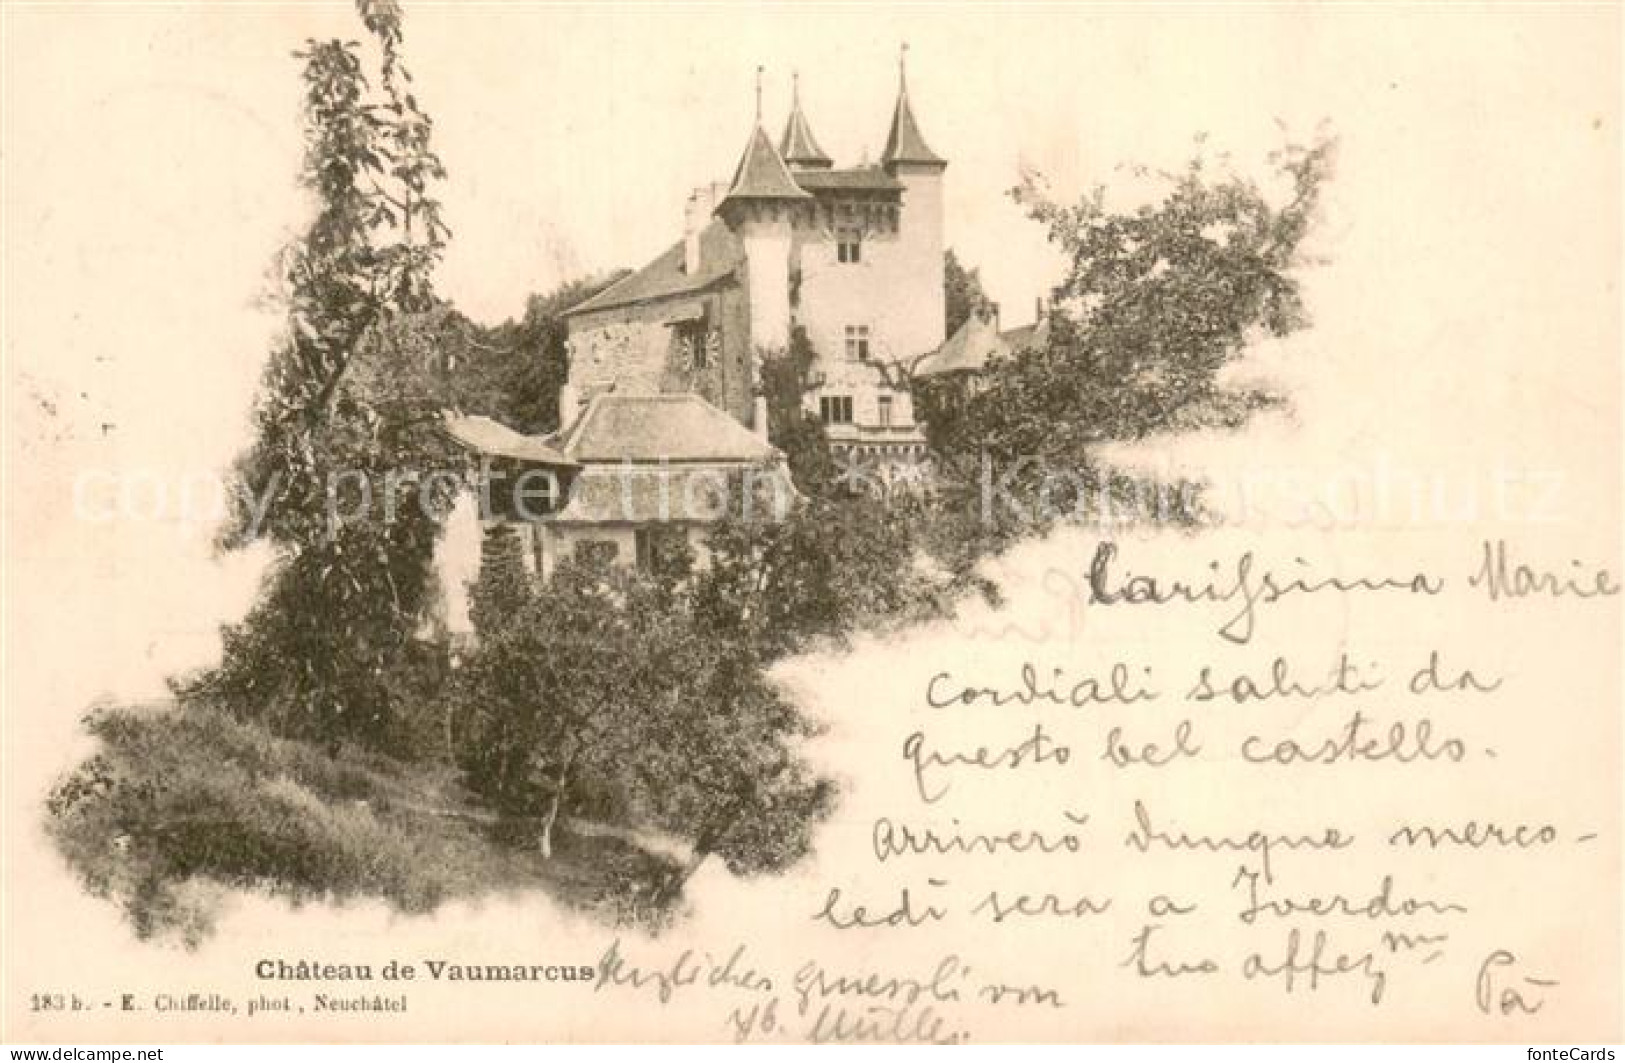 copy protection * Kopierschutz
Carissima Marie
Cordiali saluti da
questo bel castello.
Arriverò dunque merco-
ledì sera a Iverdon
tuo affez mo Pà
Château de Vaumarcus
Herzliches gruessli von
Müller
183 b. - E. Chiffelle, phot., Neuchâtel
www.delcampe.net
fonteCards